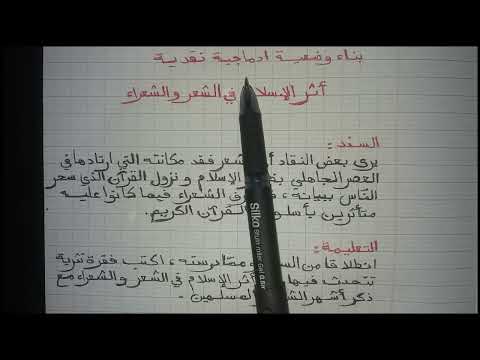 بناء وضعية ادماجية نقدية
أثر الإسلام في الشعر والشعراء
السند:
يرى بعض النقاد أ شعر فقد مكانته التي ارتادها في
العصر الجاهلي الإسلام و نزول القرآن الذي سحر
النّاس ببيانه ، الشعراء فيما كانوا عليه
متأثرين بأسلو القرآن الكريم.
التعليمة:
انطلاقا من السند ممّا درسته ، اكتب فقرة نثرية
تتحدث فيها أثر الإسلام في الشعر و الشعراء مع
ذكر أشهر الش المسلمين .
Silko